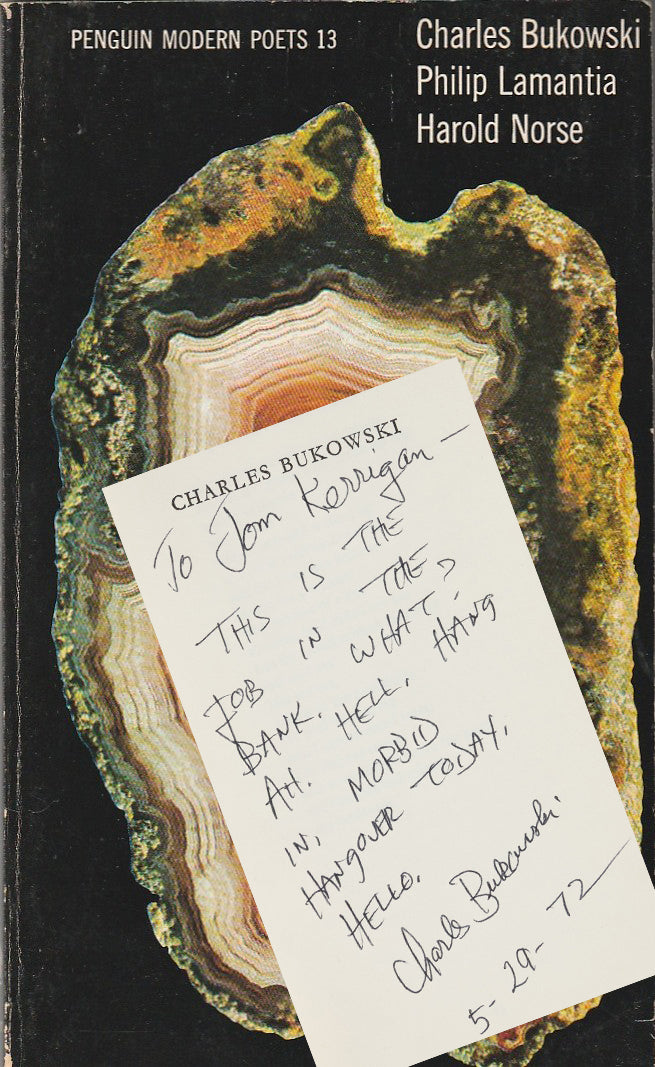 PENGUIN MODERN POETS 13
Charles Bukowski
Philip Lamantia
Harold Norse
CHARLES BUKOWSKI
To Tom Kerrigan —
THIS IS THE
JOB IN THE
BANK. WHAT?
AH. HELL, HANG
IN, MORBID
HANGOVER TODAY.
HELLO.
Charles Bukowski.
5-29-72